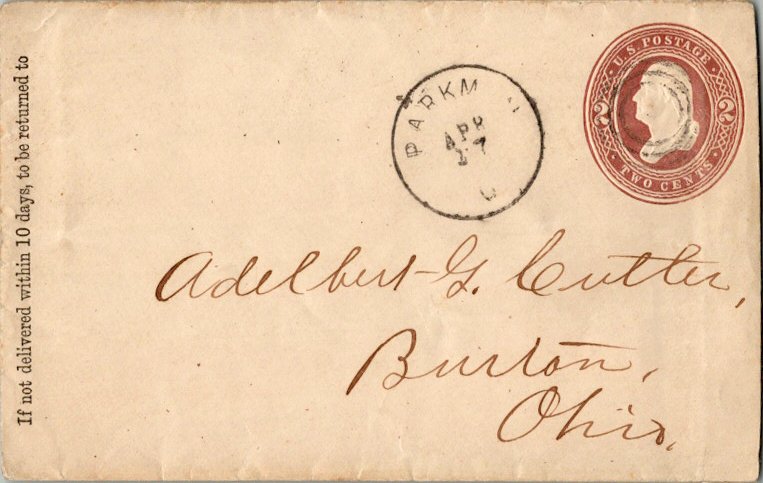 If not delivered within 10 days, to be returned to
PARKM N
APR
17
O
U.S. POSTAGE
2 2
TWO CENTS
Adelbert G. Cutler,
Burton,
Ohio.